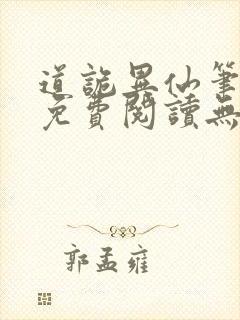 道詭異仙筆
免費閱讀無
郭孟雍